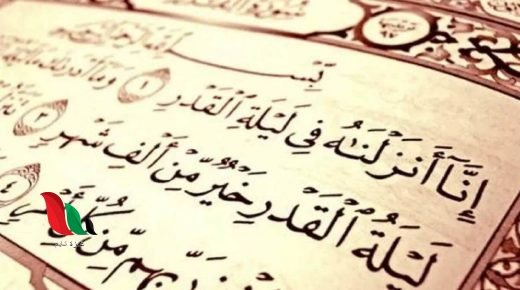 بِسْمِ
إِنَّآ أَنزَلْنَٰهُ فِي لَيْلَةِ ٱلْقَدْرِ ١ وَمَآ أَدْرَىٰكَ
لَيْلَةُ ٱلْقَدْرِ خَيْرٌ مِّنْ أَلْفِ شَهْرٍ ٣
رَبِّهِم مِّن كُلِّ أَمْرٍ ٤